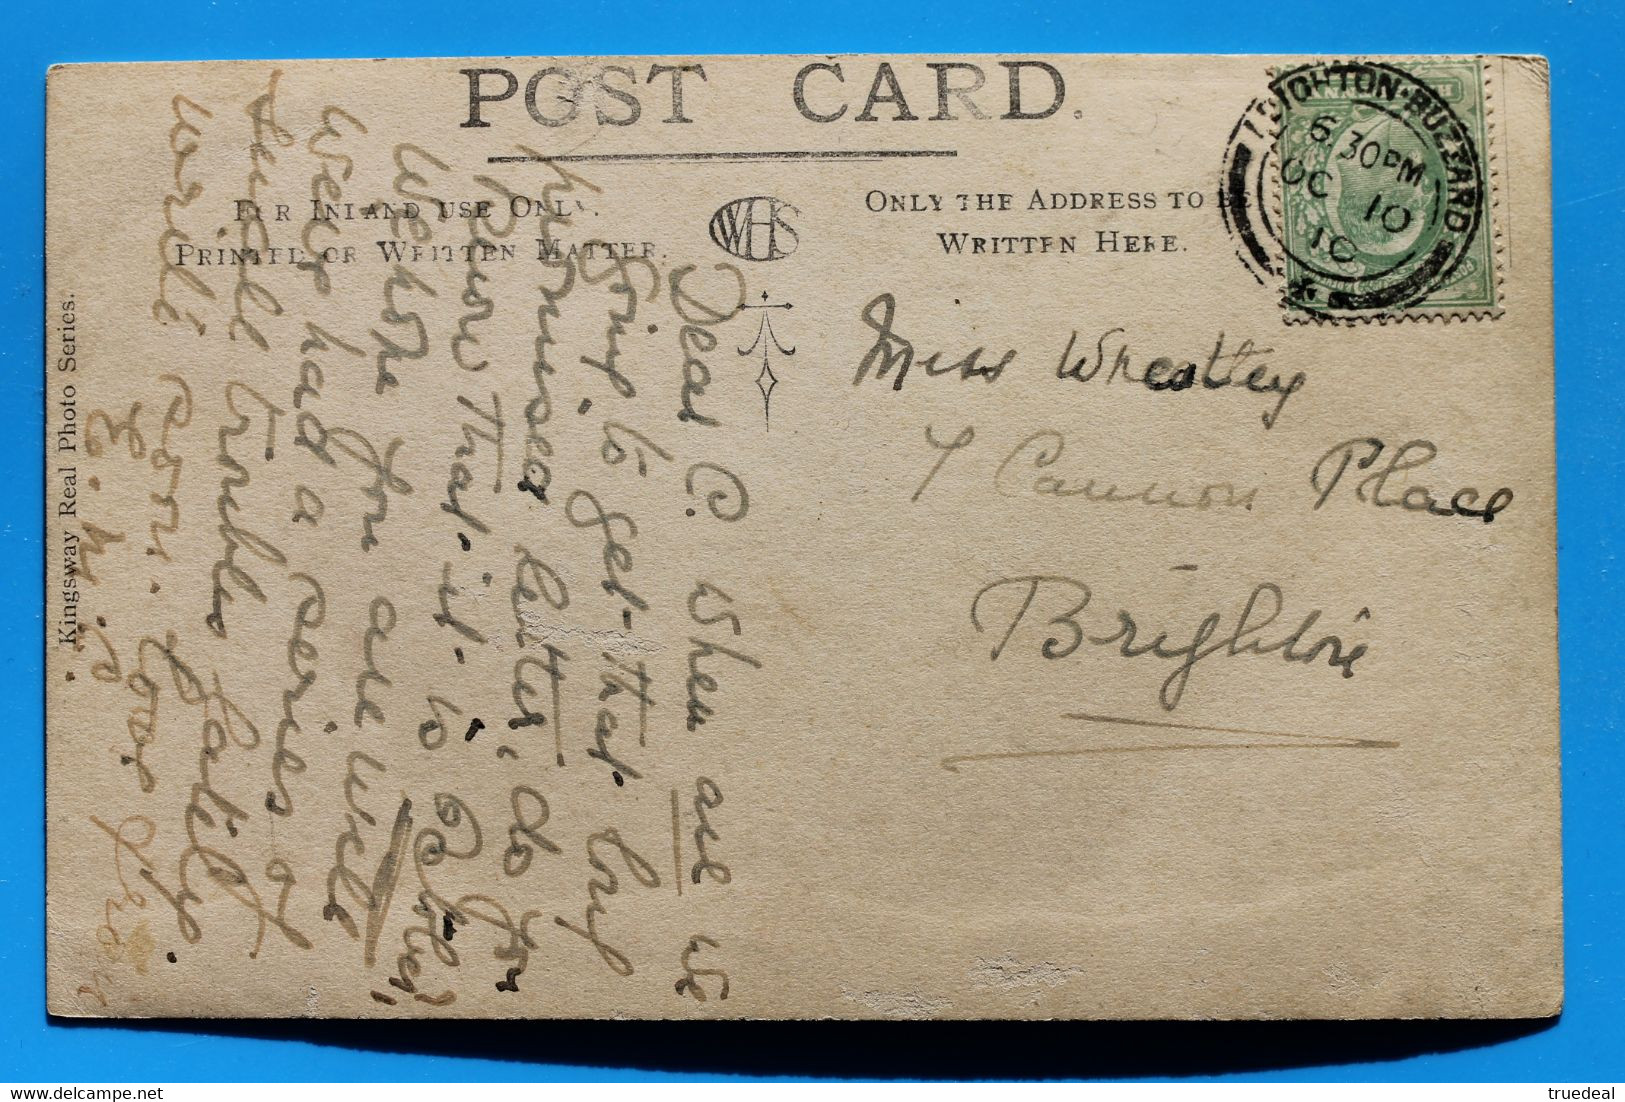 POST CARD.
FOR INLAND USE ONLY.
PRINTED OR WRITTEN MATTER.
WHS
ONLY THE ADDRESS TO BE
WRITTEN HERE.
LEIGHTON-BUZZARD
6 30 PM
OC 10
10
Kingsway Real Photo Series.
Miss Wheatley
7 Cannon Place
Brighton
Dear C. When are we
going to get that long
promised letter, do you
know that it is October?
We hope you are well
Weve had a series of
little troubles lately.
write soon. Love from
E. M. S.
truedeal